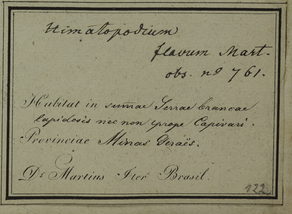 Himatopodium
flavum Mart.
obs. nº 761.
Habitat in summae Serrae brancae
lapidosis nec non prope Capivari.
Provinciae Minas Geraës.
Dr Martius Iter Brasil.
122